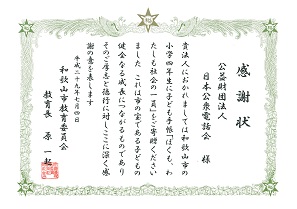 感謝状
公益財団法人
日本公衆電話会 様
貴法人におかれましては和歌山市の
小学四年生に子ども手帳「ぼくも、わ
たしも社会の一員」をご寄贈ください
ました これは市の宝である子どもの
健全なる成長につながるものであり
そのご厚志と徳行に対しここに深く感
謝の意を表します
平成二十九年七月四日
和歌山市教育委員会
教育長 原 一起